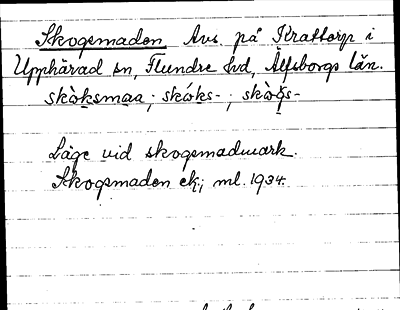 Skogsmaden Avs. på Krattorp i
Upphärad sn, Flundre hd, Älfsborgs län.
skòksmaa; skóks-; skògs-
Läge vid skogsmadmark.
Skogsmaden ek; ml. 1934.